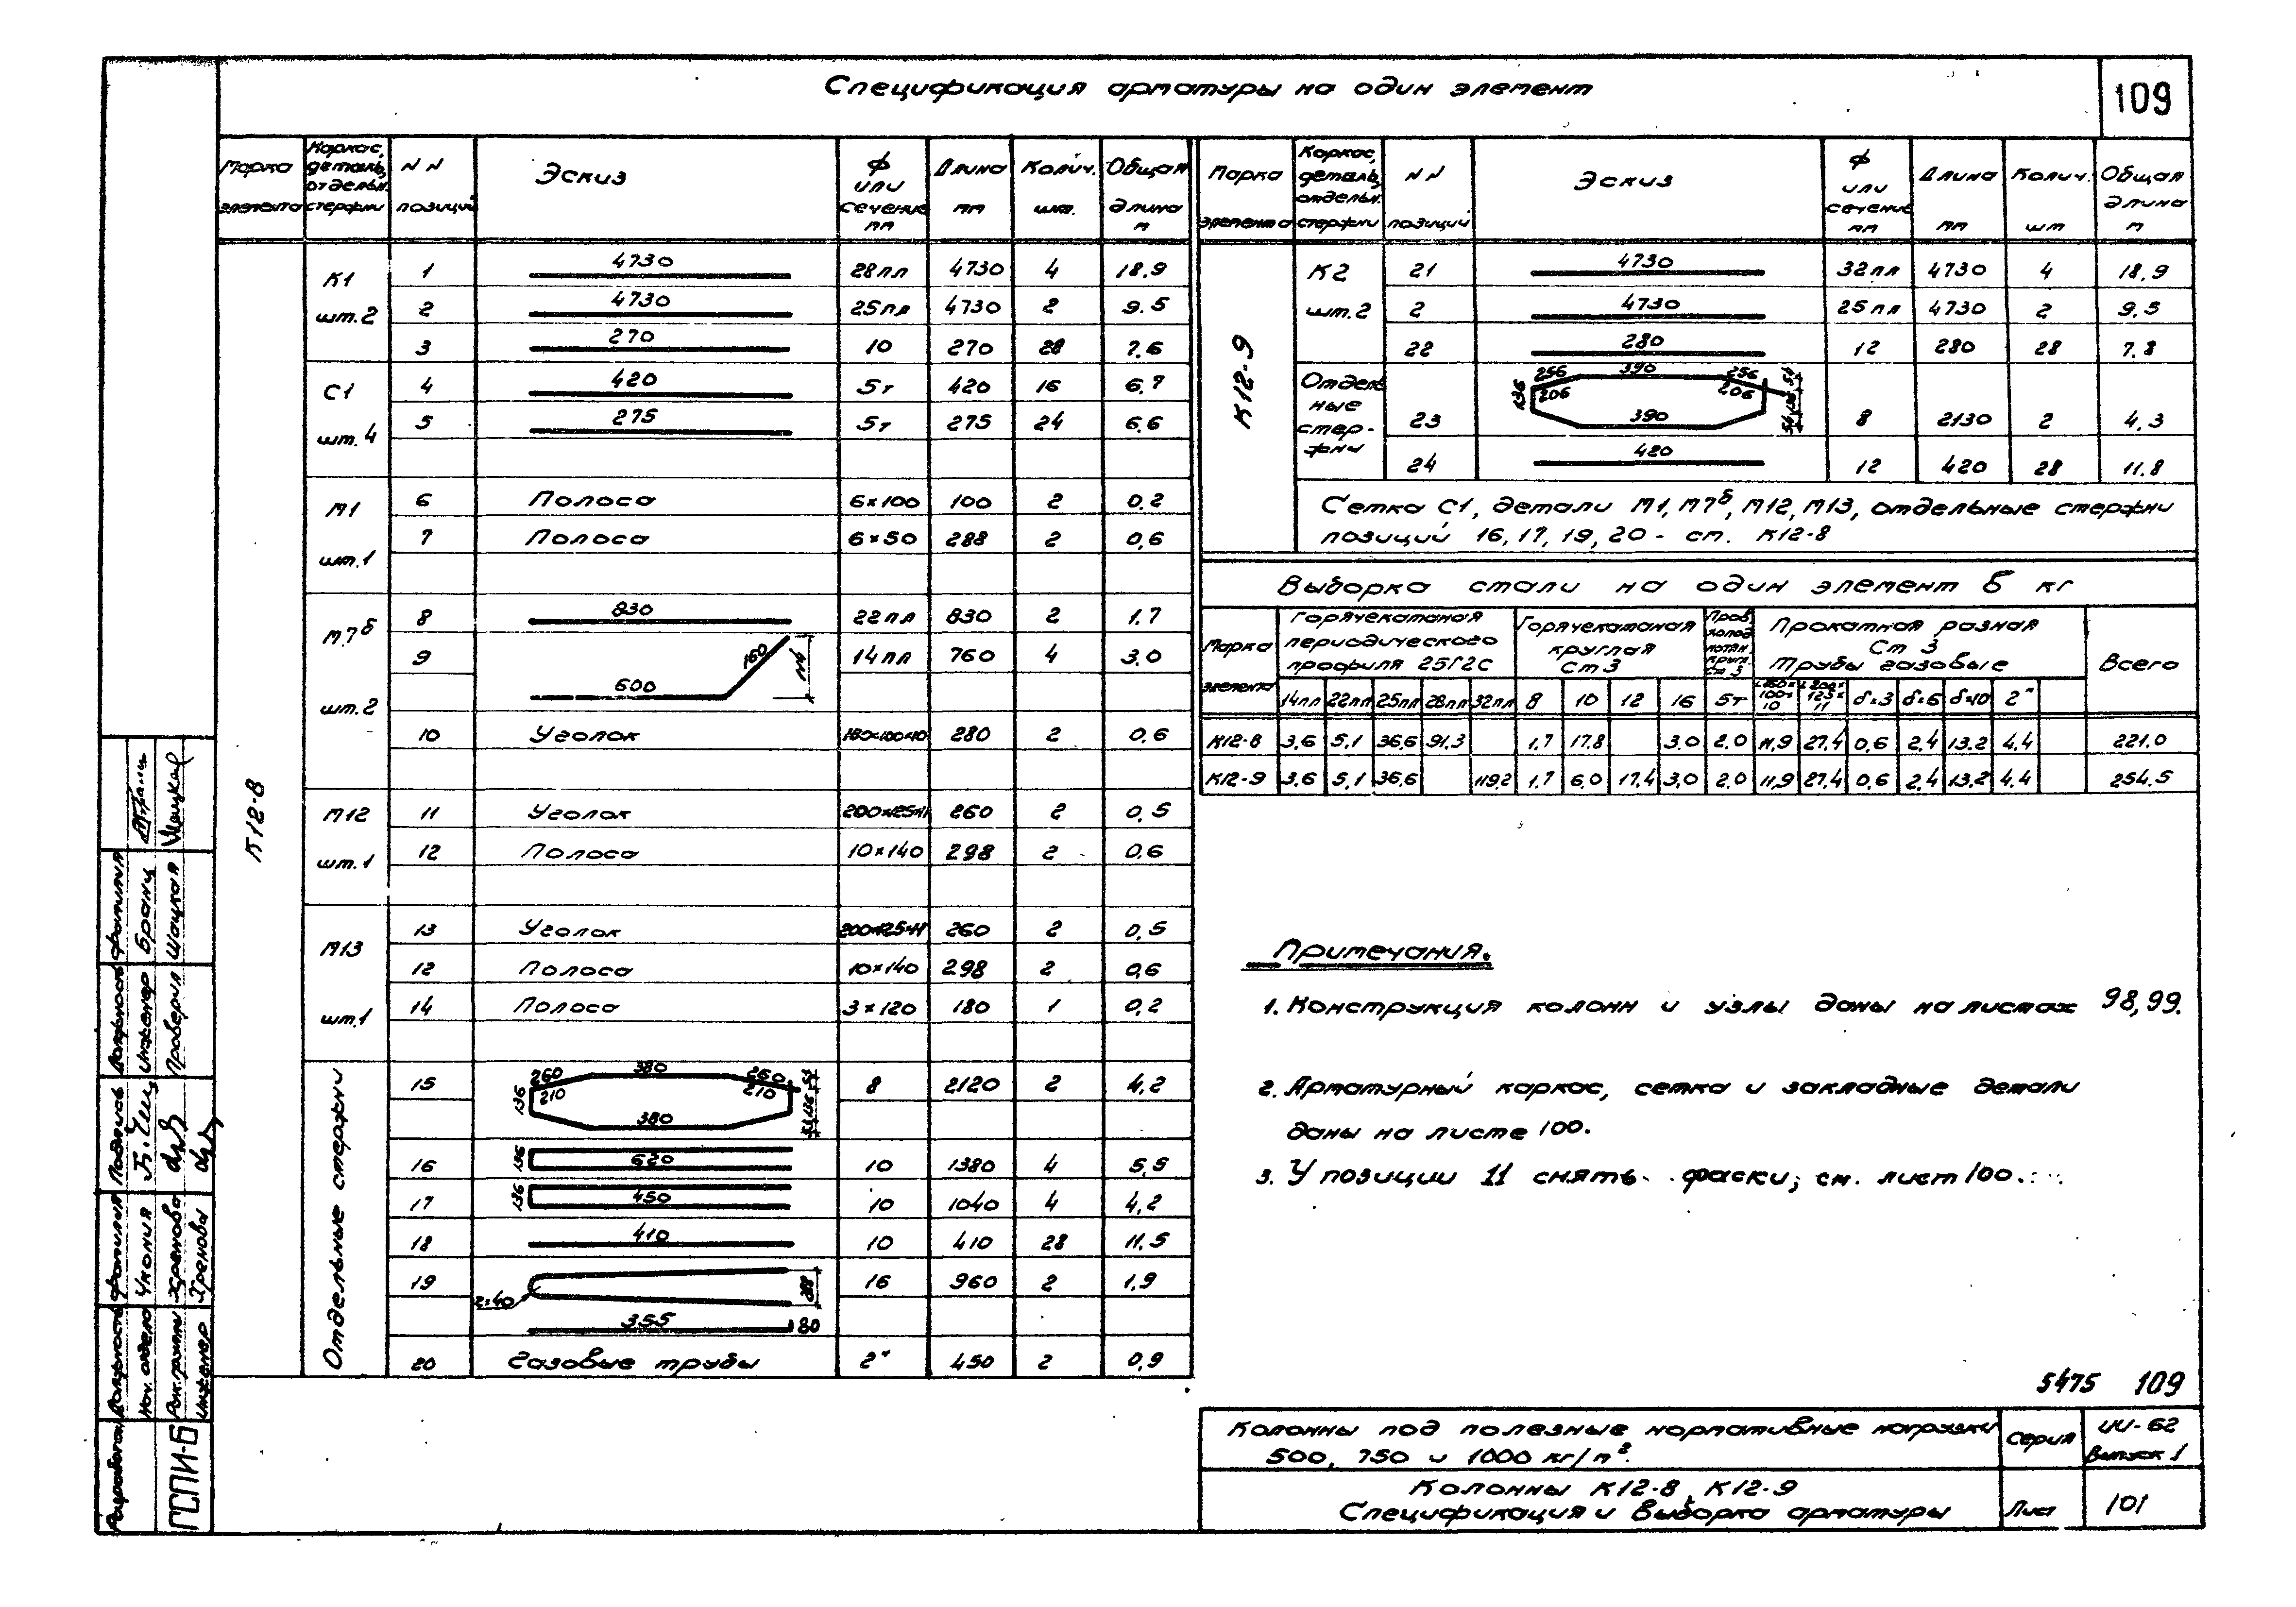 Спецификация арматуры на один элемент
109
Марка элемента | Каркас, деталь, отдельн. стержни | NN позиций | Эскиз | Ф или сечение мм | Длина мм | Колич. шт. | Общая длина м
К12-8
К1 шт.2 | 1 | 4730 | 28пл | 4730 | 4 | 18.9
2 | 4730 | 25пл | 4730 | 2 | 9.5
3 | 270 | 10 | 270 | 28 | 7.6
С1 шт.4 | 4 | 420 | 5т | 420 | 16 | 6.7
5 | 275 | 5т | 275 | 24 | 6.6
М1 шт.1 | 6 | Полоса | 6×100 | 100 | 2 | 0.2
7 | Полоса | 6×50 | 288 | 2 | 0,6
М7б шт.2 | 8 | 830 | 22пл | 830 | 2 | 1.7
9 | 600 160 | 14пл | 760 | 4 | 3.0
10 | Уголок | 160×100×10 | 280 | 2 | 0,6
М12 шт.1 | 11 | Уголок | 200×125×11 | 260 | 2 | 0,5
12 | Полоса | 10×140 | 298 | 2 | 0.6
М13 шт.1 | 13 | Уголок | 200×125×11 | 260 | 2 | 0,5
12 | Полоса | 10×140 | 298 | 2 | 0,6
14 | Полоса | 3×120 | 180 | 1 | 0,2
Отдельные стержни | 15 | 260 380 260 136 210 210 380 53 136 53 | 8 | 2120 | 2 | 4,2
16 | 136 620 | 10 | 1380 | 4 | 5,5
17 | 136 450 | 10 | 1040 | 4 | 4,2
18 | 410 | 10 | 410 | 28 | 11.5
19 | r=40 355 80 | 16 | 960 | 2 | 1,9
20 | Газовые трубы | 2" | 450 | 2 | 0,9
Марка элемента | Каркас, деталь, отдельн. стержни | NN позиций | Эскиз | Ф или сечение мм | Длина мм | Колич. шт | Общая длина м
К12-9
К2 шт.2 | 21 | 4730 | 32пл | 4730 | 4 | 18,9
2 | 4730 | 25пл | 4730 | 2 | 9,5
22 | 280 | 12 | 280 | 28 | 7.8
Отдельные стержни | 23 | 256 390 256 136 206 206 390 54 136 54 | 8 | 2130 | 2 | 4,3
24 | 420 | 12 | 420 | 28 | 11.8
Сетка С1, детали М1, М7б, М12, М13, отдельные стержни
позиций 16, 17, 19, 20 - см. К12-8
Выборка стали на один элемент в кг
Марка элемента | Горячекатаная периодического профиля 25Г2С | Горячекатаная круглая Ст 3 | Пров. холод. нотян. кругл. Ст 3 | Прокатная разная Ст 3 Трубы газовые | Всего
14пл | 22пл | 25пл | 28пл | 32пл | 8 | 10 | 12 | 16 | 5т | ∟160×100×10 | ∟200×125×11 | δ=3 | δ=6 | δ=10 | 2"
К12-8 | 3,6 | 5,1 | 36,6 | 91,3 | 1,7 | 17.8 | 3.0 | 2.0 | 11,9 | 27.4 | 0,6 | 2,4 | 13.2 | 4,4 | 221.0
К12-9 | 3.6 | 5,1 | 36,6 | 119,2 | 1.7 | 6.0 | 17.4 | 3,0 | 2.0 | 11,9 | 27,4 | 0,6 | 2,4 | 13,2 | 4.4 | 254.5
Примечания.
1. Конструкция колонн и узлы даны на листах 98, 99.
2. Арматурный каркас, сетка и закладные детали
даны на листе 100.
3. У позиции 11 снять фаски; см. лист 100.
5475 109
Колонны под полезные нормативные нагрузки
500, 750 и 1000 кг/м².
Серия
ИИ-62
Выпуск 1
Колонны К12-8, К12-9
Спецификация и выборка арматуры
Лист
101
Фамилия Бранц Шацкая
Должность Инженер Проверил
Подпись
Фамилия Чкония Хренова Хренова
Должность Нач. отдела Рук. группы Инженер
Разработан
ГСПИ-6